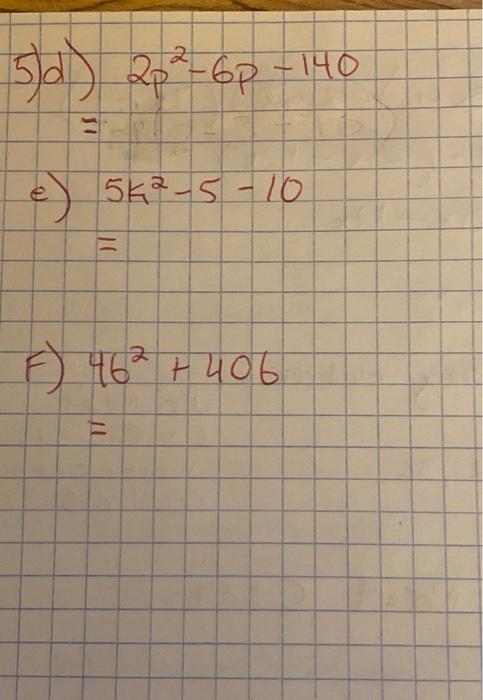 5)d) 2p²-6p-140
=
e) 5k²-5-10
=
F) 4b²+40b
=